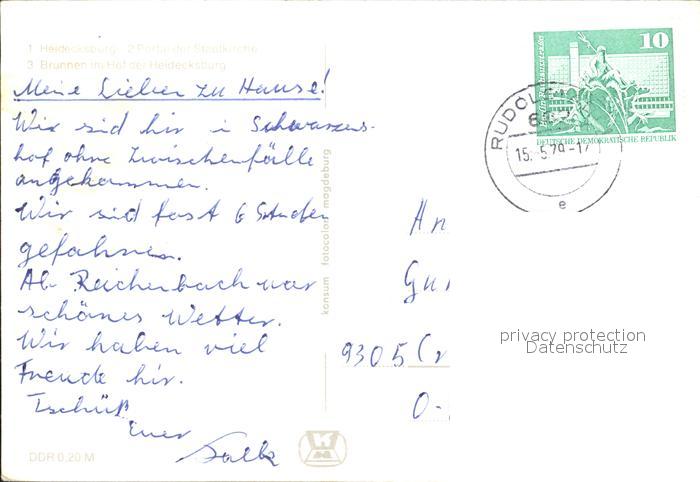 1 Heidecksburg 2 Portal der Stadtkirche
3 Brunnen im Hof der Heidecksburg
Meine Lieben zu Hause!
Wir sind hir i Schwarzens-
hof ohne Zwischenfälle
angekommen.
Wir sind fast 6 Studen
gefahren.
Ab Reichenbach war
schönes Wetter.
Wir haben viel
Freude hir.
Tschüß
Euer
DDR 0,20 M
konsum fotocolor magdeburg
10
DEUTSCHE DEMOKRATISCHE REPUBLIK
RUDOLS
15.5.79-17
e
An
Gu
9305
O-
privacy protection
Datenschutz